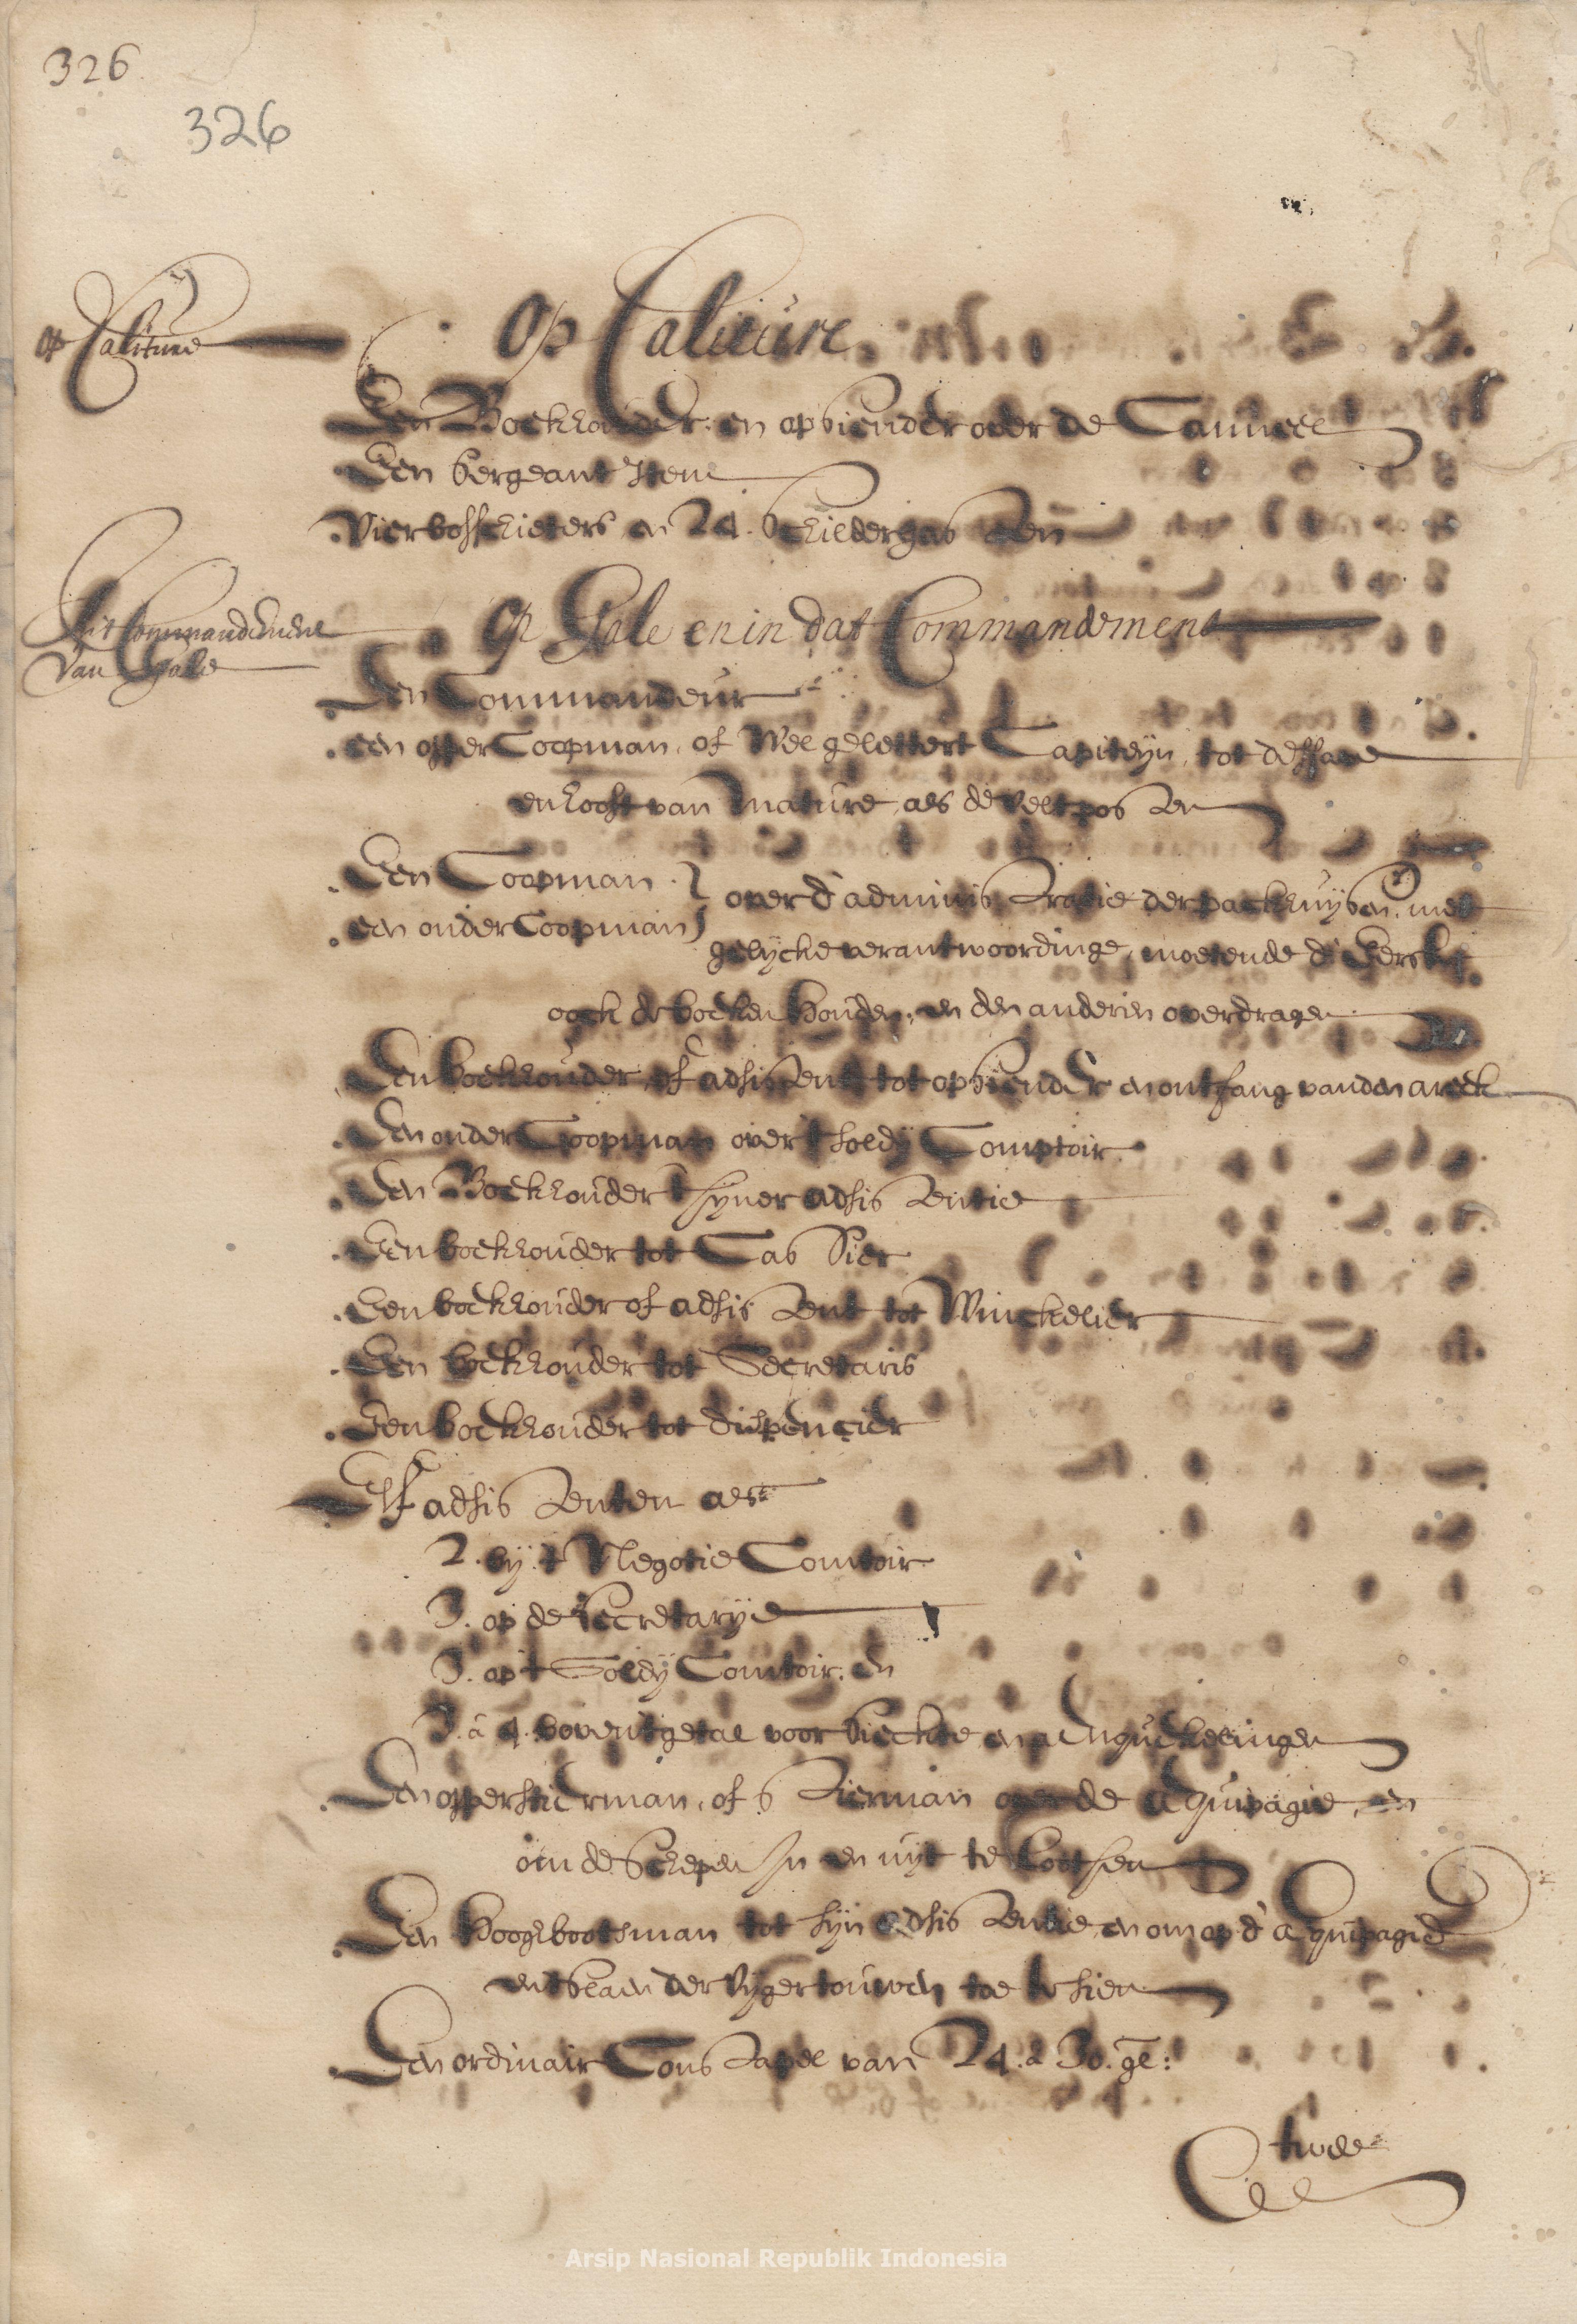 326
326
op Caliture
Op Caliture
Een Boekhouder en opsiender over de Canneel
Een Sergeant Item
Vier bosschieters en 24. hildergasten
In't Commandement
van Gale
Op Gale en in dat Commandement
Den Commandeur
een opper Coopman, of Wel gelettert Capiteyn, tot dessave
en hooft van Mature, als de veltposten
Een Coopman
een onder Coopman
over d' administratie der packhuysen, met
gelycke verantwoordinge, moetende d' Eerste
oock de boeken houden, en den anderen overdragen
Een boekhouder, of adsistent tot opsiender en ontfang vanden areek
Een onder Coopman over t soldij Comptoir
Een Boekhouder t syner adsistentie
Een boekhouder tot Cassier
Een boekhouder of adsistent tot Winckelier
Een boekhouder tot Secretaris
Een boekhouder tot dispencier
Elf adsistenten als
2. by 't Negotie Comtoir
3. op de Secretarije
3. op 't Soldij Comtoir, en
3. a 4. boven 't getal voor Sieckte en
Een opperstierman, of stierman over de Equipagie, en
om de Schepen In en uyt te Lootsen
Een Hooghbootsman tot syn adsistentie, en om op d' equipagie
en t slaen der touwen toe te sien
Een ordinair Constapel van 24. a 30. gl:
twee
Arsip Nasional Republik Indonesia